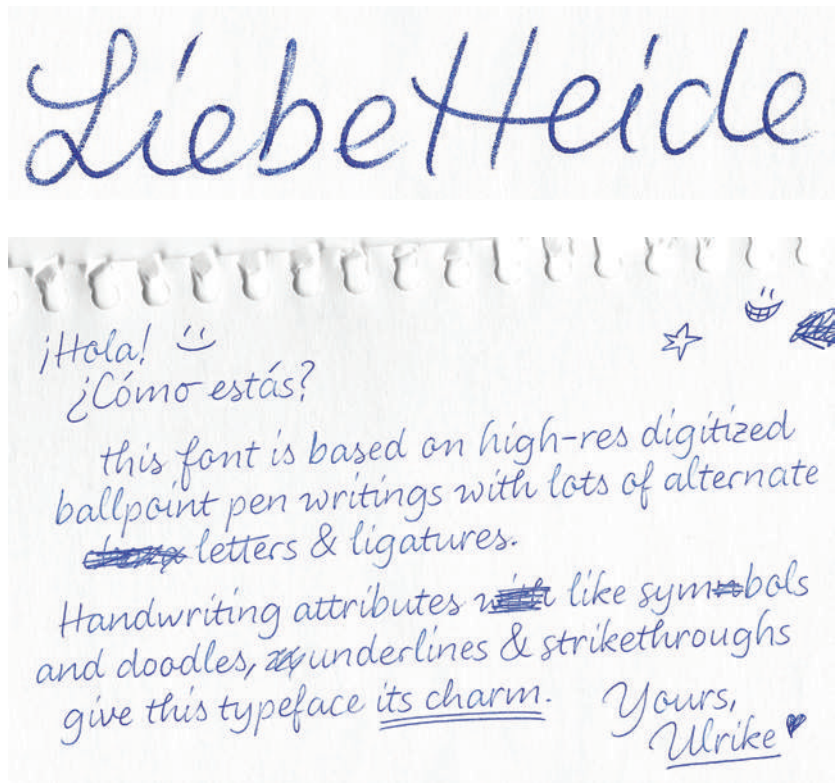 LiebeHeide
¡Hola!
¿Cómo estás?
this font is based on high-res digitized
ballpoint pen writings with lots of alternate
letters & ligatures.
Handwriting attributes with like symbols
and doodles, underlines & strikethroughs
give this typeface its charm.
Yours,
Ulrike